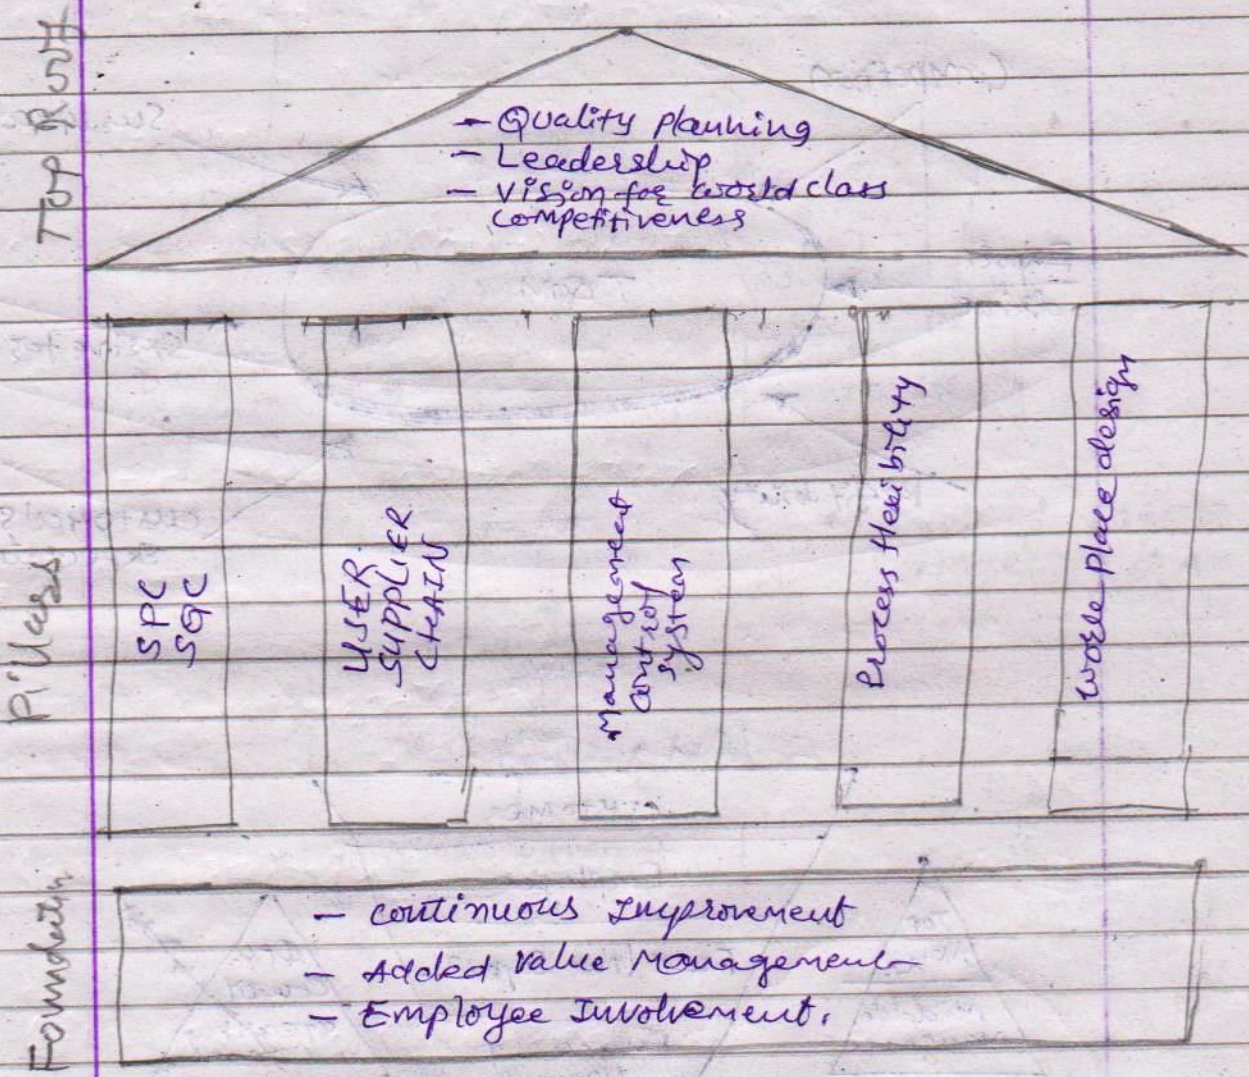 Top Roof
- Quality planning
- Leadership
- Vision for world class
competitiveness
Pillars
SPC
SQC
USER
SUPPLIER
CHAIN
Management
control
system
Process flexibility
Work place design
Foundation
- continuous Improvement
- Added value Management
- Employee Involvement.